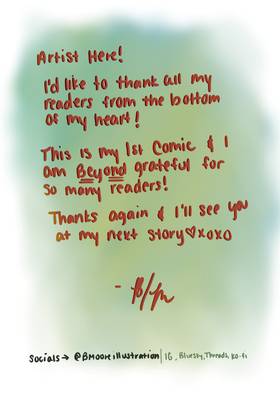 Artist Here!
I'd like to thank all my
readers from the bottom
of my heart!
This is my 1st Comic & I
am Beyond grateful for
so many readers!
Thanks again & I'll see you
at my next story♡xoxo
Socials → @BMooreillustration | IG, Bluesky, Threads, Ko-fi